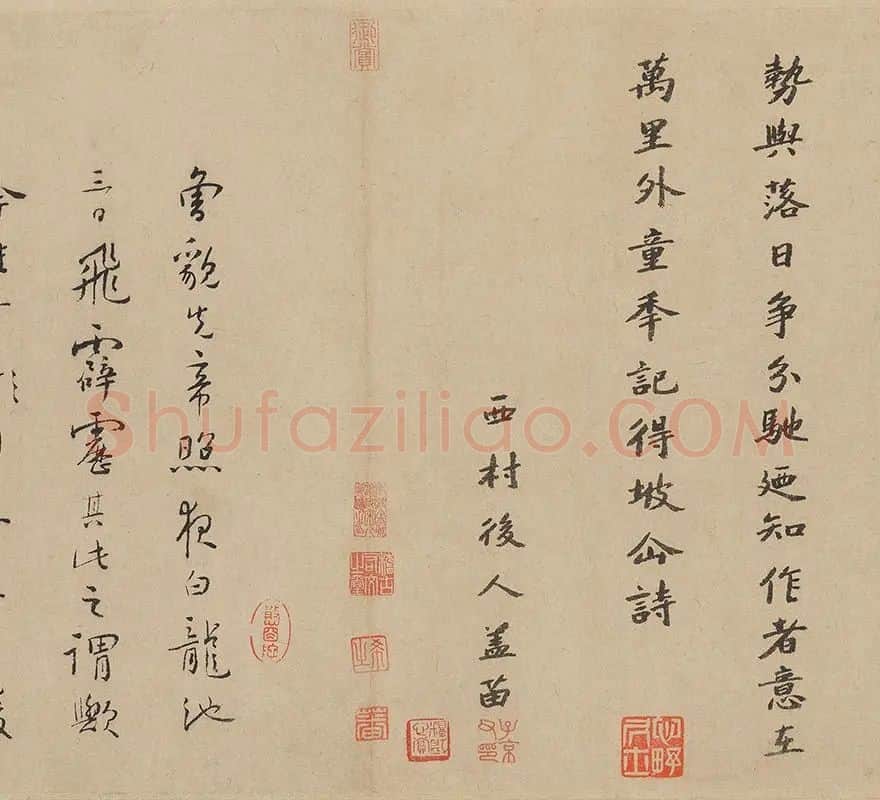 勢與落日争分馳廼知作者意在
萬里外童秊記得坡仚詩
西村後人盖苗
曾貌先帝照夜白龍池
三日飛霹靂其此之謂歟
Shufaziliao.COM